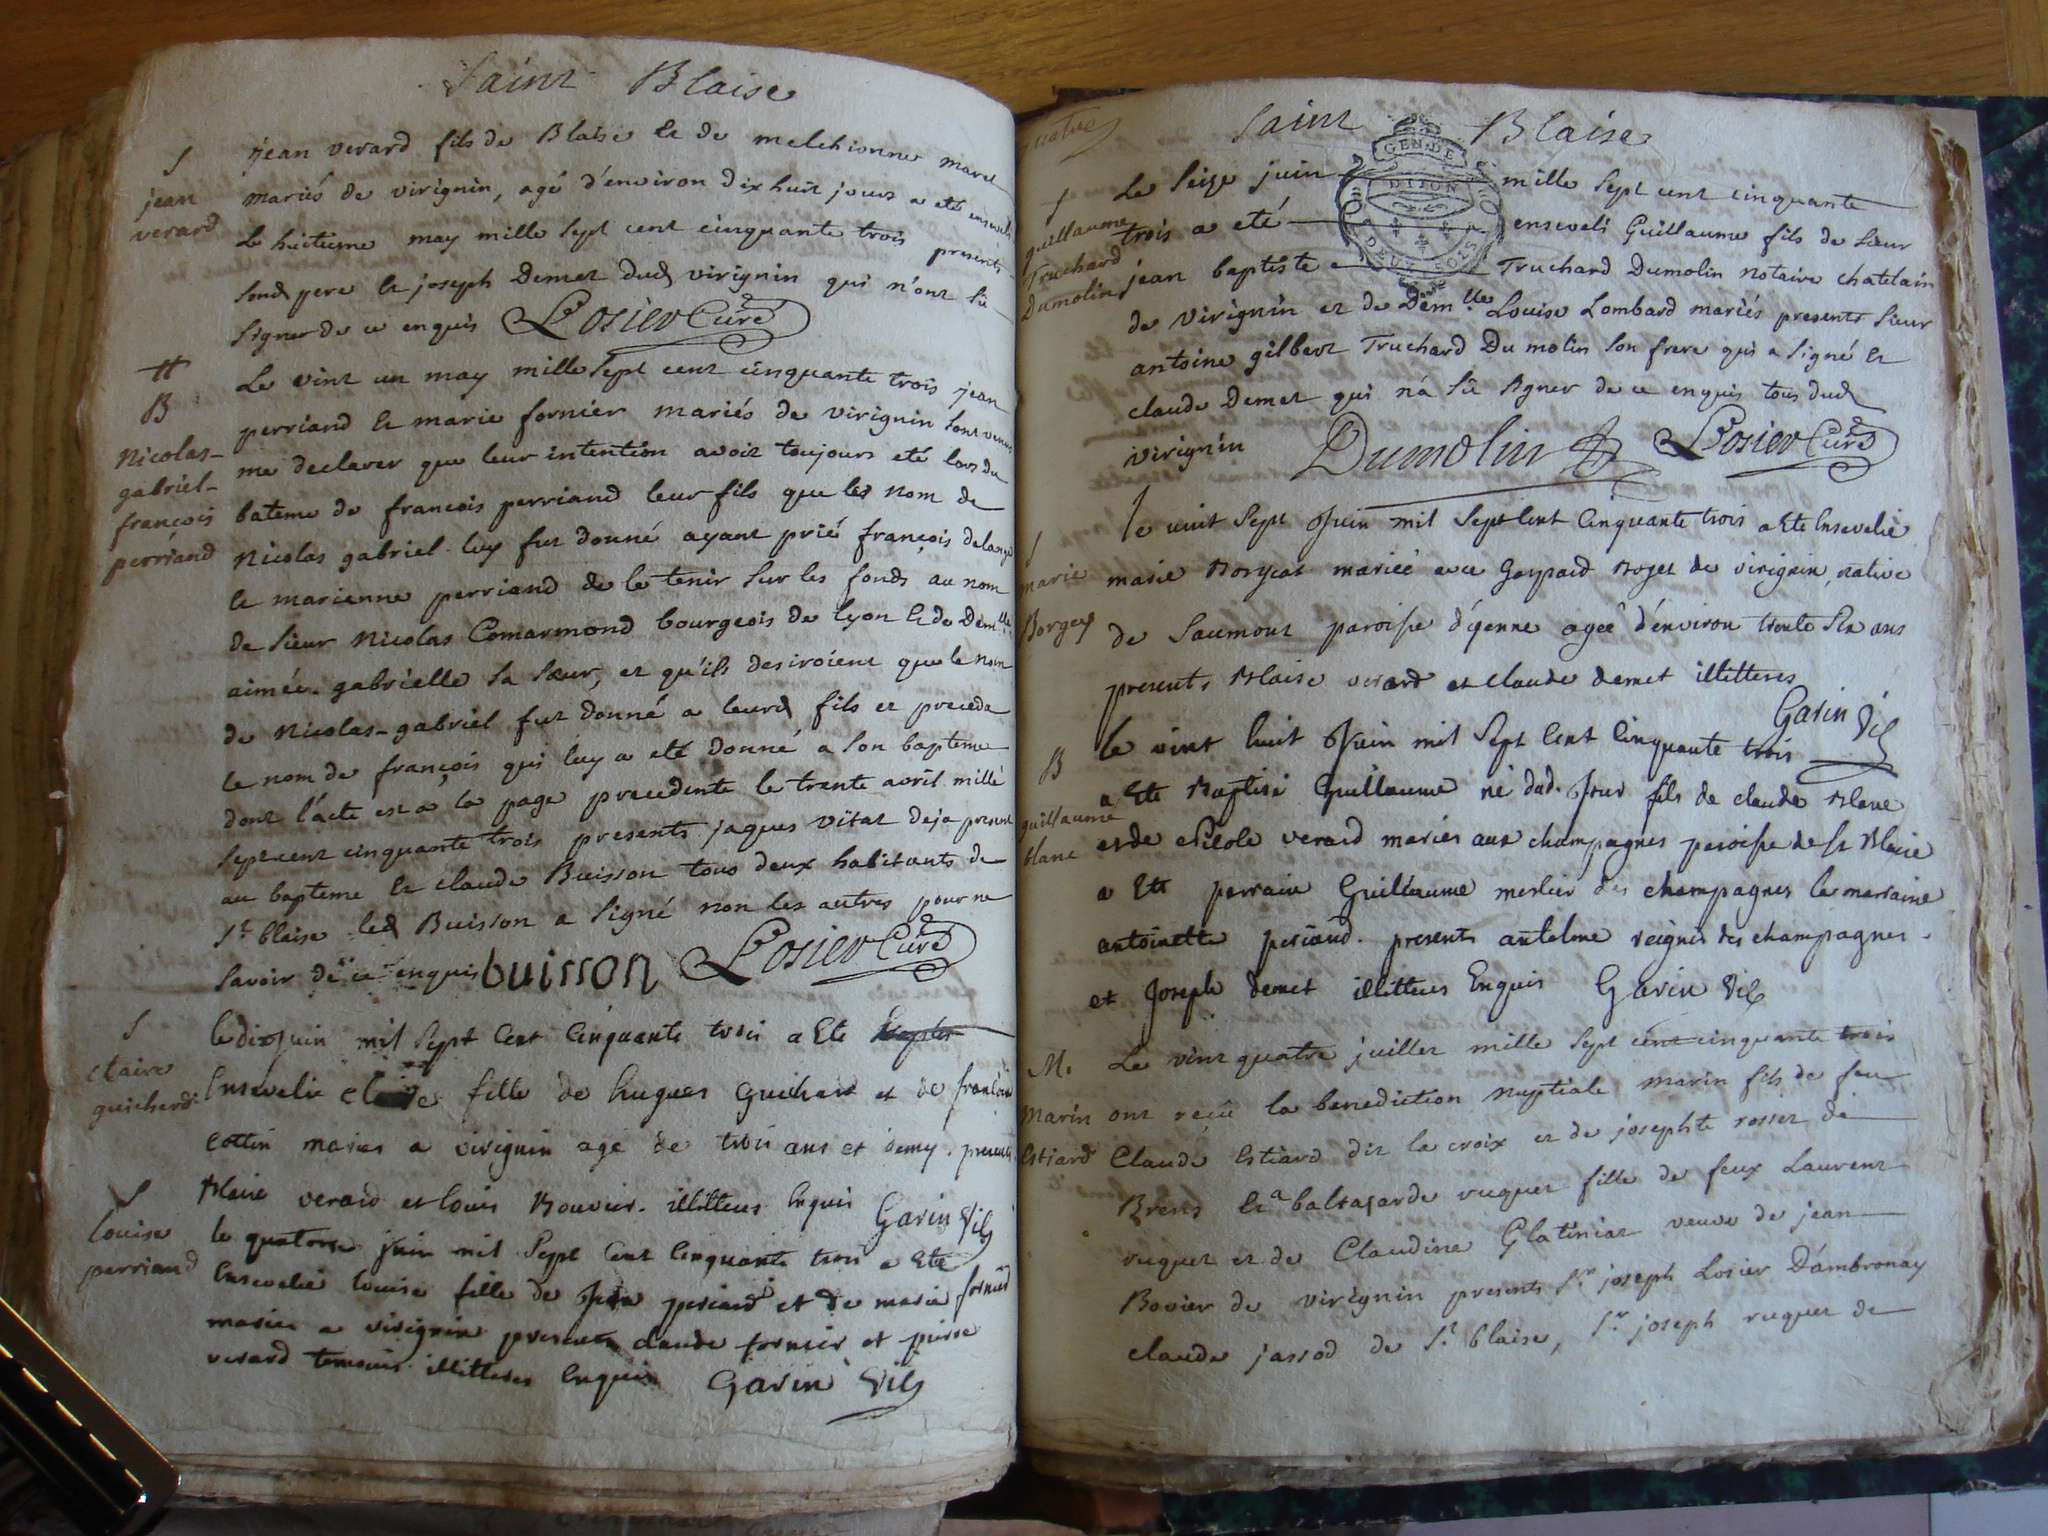 Saint Blaise
S
jean
verard
jean verard fils de Blaise et de melchionne maret
mariés de virignin, agé d'environ dix huit jours a eté enseveli
Le huitieme may mille sept cent cinquante trois presents
sond pere et joseph Demet dud virignin qui n'ont sû
signer de ce enquis Losier Curé
B
Nicolas-
gabriel-
françois
perriand
Le vint un may mille sept cent cinquante trois jean
perriand et marie fornier mariés de virignin sont venus
me declarer que leur intention avoit toujours eté lors du
bateme de francois perriand leur fils que les nom de
Nicolas gabriel luy fut donné ayant prié françois
et marienne perriand de le tenir sur les fonds au nom
de sieur Nicolas Comarmond bourgeois de lyon et de Dem.lle
aimée gabrielle sa sœur, et qu'ils desiroient que le nom
de Nicolas-gabriel fut donné a leurd fils et preceda
le nom de françois qui luy a eté donné a son bapteme
dont l'acte est a la page precedente le trente avril mille
sept cent cinquante trois presents jaques vitat deja present
au bapteme et claude Buisson tous deux habitants de
S.t blaise led Buisson a signé non les autres pour ne
savoir de ce enquis buisson Losier Curé
S
claire
guichard
le dix juin mil sept cent cinquante trois a ete
Ensevelie claire fille de hugues Guichard et de
cottin maries a virignin age de trois ans et demy. presents
Blaise verard et louis Bouvier. illitteres Enquis Garin Vic
S
louise
perriand
le quatorse juin mil sept cent cinquante trois a ete
Ensevelie louise fille de jean periand et de marie fornier
maries a virignin presents claude fornier et pierre
verard temoins illitteres Enquis Garin Vic
quatre
Saint Blaise
GEN. DE
DIJON
DEUX SOLS
S
guillaume
Truchard
Dumolin
Le seize juin mille sept cent cinquante
trois a eté enseveli Guillaume fils de sieur
jean baptiste Truchard Dumolin notaire chatelain
de virignin et de Dem.lle Louise Lombard mariés presents sieur
antoine gilbert Truchard Du molin son frere qui a signé et
claude Demet qui n'a sû signer de ce enquis tous dud
virignin Dumolin Losier Curé
S
marie
Borgey
le vint sept juin mil sept cent cinquante trois a ete Ensevelie
marie mariée avec Gaspard Roget de virignin, native
de Saumont paroisse d'yenne agée d'environ trente six ans
presents Blaise verard et claude demet illitteres
Garin Vic
B
guillaume
blanc
le vint huit juin mil sept cent cinquante trois
a ete Baptisé Guillaume né dud. jour fils de claude Blanc
et de verard maries aux champagnes paroisse de st Blaise
a ete parrain Guillaume merlier des champagnes la marraine
antoinette periand. presents antelme reignier des champagnes.
et Joseph demet illitteres Enquis Garin Vic
M.
Marin
Estiard
Le vint quatre juillet mille sept cent cinquante trois
ont reçû la benediction nuptiale marin fils de feu
Claude Estiard dit la croix et de josephte rosset de
Brens et balthasarde ruquet fille de feux Laurent
ruquet et de Claudine Glatiniat veuve de jean
Bovier de virignin presents S.r joseph Losier D'ambronay
claude jassod de S.t blaise, S.r joseph ruquet de